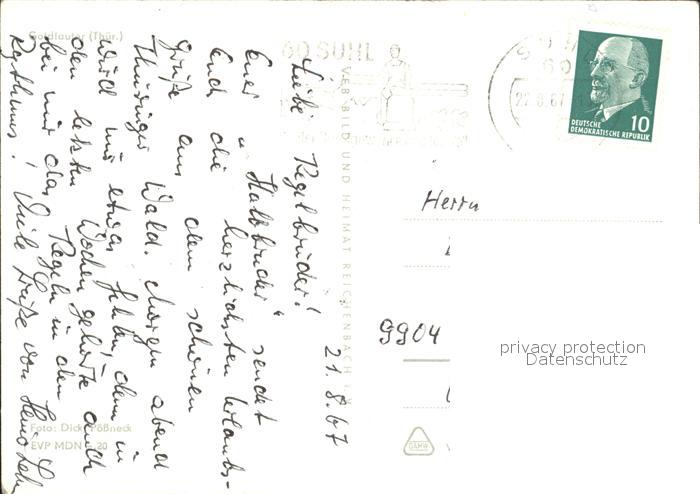 Goldlauter (Thür.)
60 SUHL
22.8.67
DEUTSCHE
DEMOKRATISCHE REPUBLIK
10
21.8.67
Liebe Kegelbrüder!
Euer „Halbbruder“ sendet
Euch die herzlichsten Urlaubs-
grüße aus dem schönen
Thüringer Wald. Morgen abend
wird mir etwas fehlen, denn in
den letzten Wochen gehörte auch
bei mir das Kegeln in den
Rythmus! Viele Grüße von
VEB BILD UND HEIMAT REICHENBACH I. V.
Herrn
9904
privacy protection
Datenschutz
Foto: Dick, Pößneck
EVP MDN 0.20